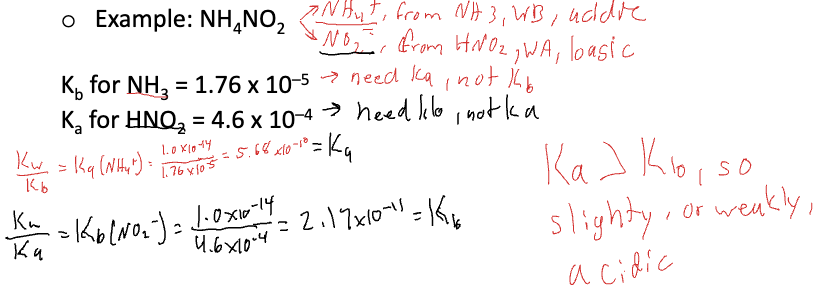 o Example: NH₄NO₂
NH₄⁺, from NH3, WB, acidic
NO₂⁻, from HNO₂, WA, basic
K_b for NH₃ = 1.76 x 10⁻⁵ → need ka, not kb
K_a for HNO₂ = 4.6 x 10⁻⁴ → need kb, not ka
Kw/Kb = Ka(NH₄⁺) = 1.0x10⁻¹⁴/1.76x10⁻⁵ = 5.68x10⁻¹⁰ = Ka
Kw/Ka = Kb(NO₂⁻) = 1.0x10⁻¹⁴/4.6x10⁻⁴ = 2.17x10⁻¹¹ = Kb
Ka > Kb, so
slighty, or weakly,
acidic